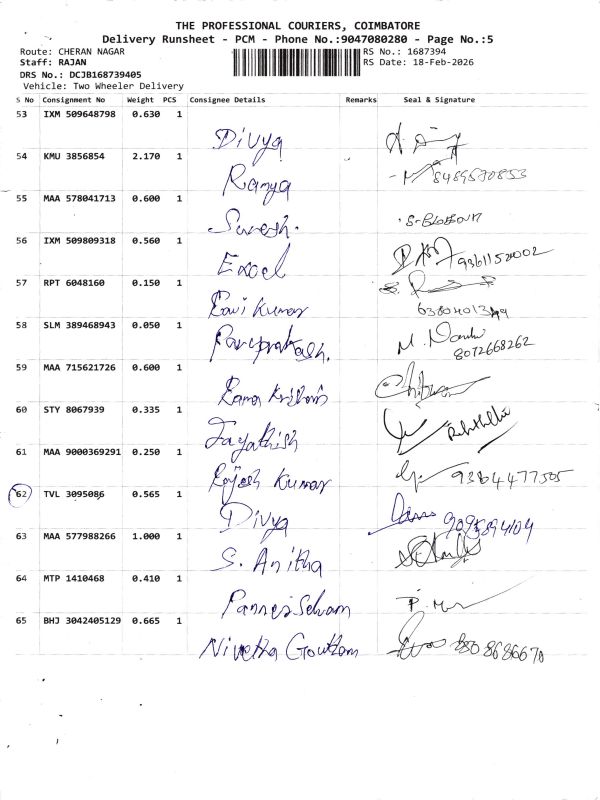 THE PROFESSIONAL COURIERS, COIMBATORE
Delivery Runsheet - PCM - Phone No.:9047080280 - Page No.:5
Route: CHERAN NAGAR
RS No.: 1687394
Staff: RAJAN
RS Date: 18-Feb-2026
DRS No.: DCJB168739405
Vehicle: Two Wheeler Delivery
S No Consignment No Weight PCS Consignee Details Remarks Seal & Signature
53 IXM 509648798 0.630 1
Divya
54 KMU 3856854 2.170 1
Ramya 8489570853
55 MAA 578041713 0.600 1
Suresh.
56 IXM 509809318 0.560 1
Excel
57 RPT 6048160 0.150 1
Ravi Kumar
58 SLM 389468943 0.050 1
8072668262
59 MAA 715621726 0.600 1
Rama Krishnan
60 STY 8067939 0.335 1
Jayathish
61 MAA 9000369291 0.250 1
Rajesh Kumar
62 TVL 3095086 0.565 1
Divya
63 MAA 577988266 1.000 1
S. Anitha
64 MTP 1410468 0.410 1
Panneerselvam
65 BHJ 3042405129 0.665 1
Nivetha Gowtham